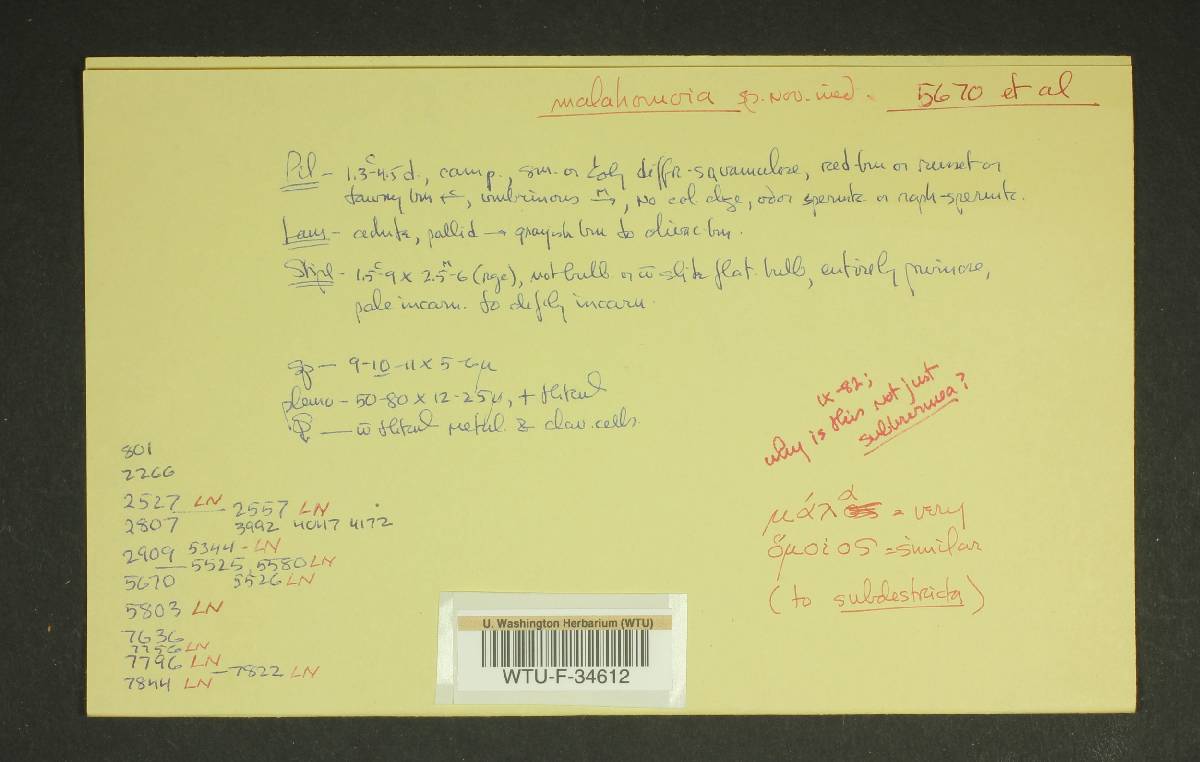 malahomoia sp. nov. ined. 5670 et al
Pil - 1.3c-4.5 d., camp., sm. or diffr-squamulose, red-brn or russet or
tawny brn, umbrinous, no col. dge, odor spermtc. or raph-spermtc.
Lam - adnte, pallid → grayish brn to olivac brn.
Stipe - 1.5c-9 x 2.5m-6 (rge), not bulb or w̄ slite flat bulb, entirely pruinose,
pale incarn. to dfly incarn.
sp — 9-10-11 x 5-6μ
pleuro - 50-80 x 12-25μ, + thkwl
w̄ thkwl metul. & clav. cells.
IX-82;
why is this not just
subbrunnea?
801
2266
2527 LN - 2557 LN
2807 3992 4047 4172
2909 5344 - LN
— 5525, 5580 LN
5670 5526 LN
5803 LN
7636
7756 LN
7796 LN
— 7822 LN
7844 LN
μάλα = very
ὅμοιος = similar
(to subdestricta)
U. Washington Herbarium (WTU)
WTU-F-34612